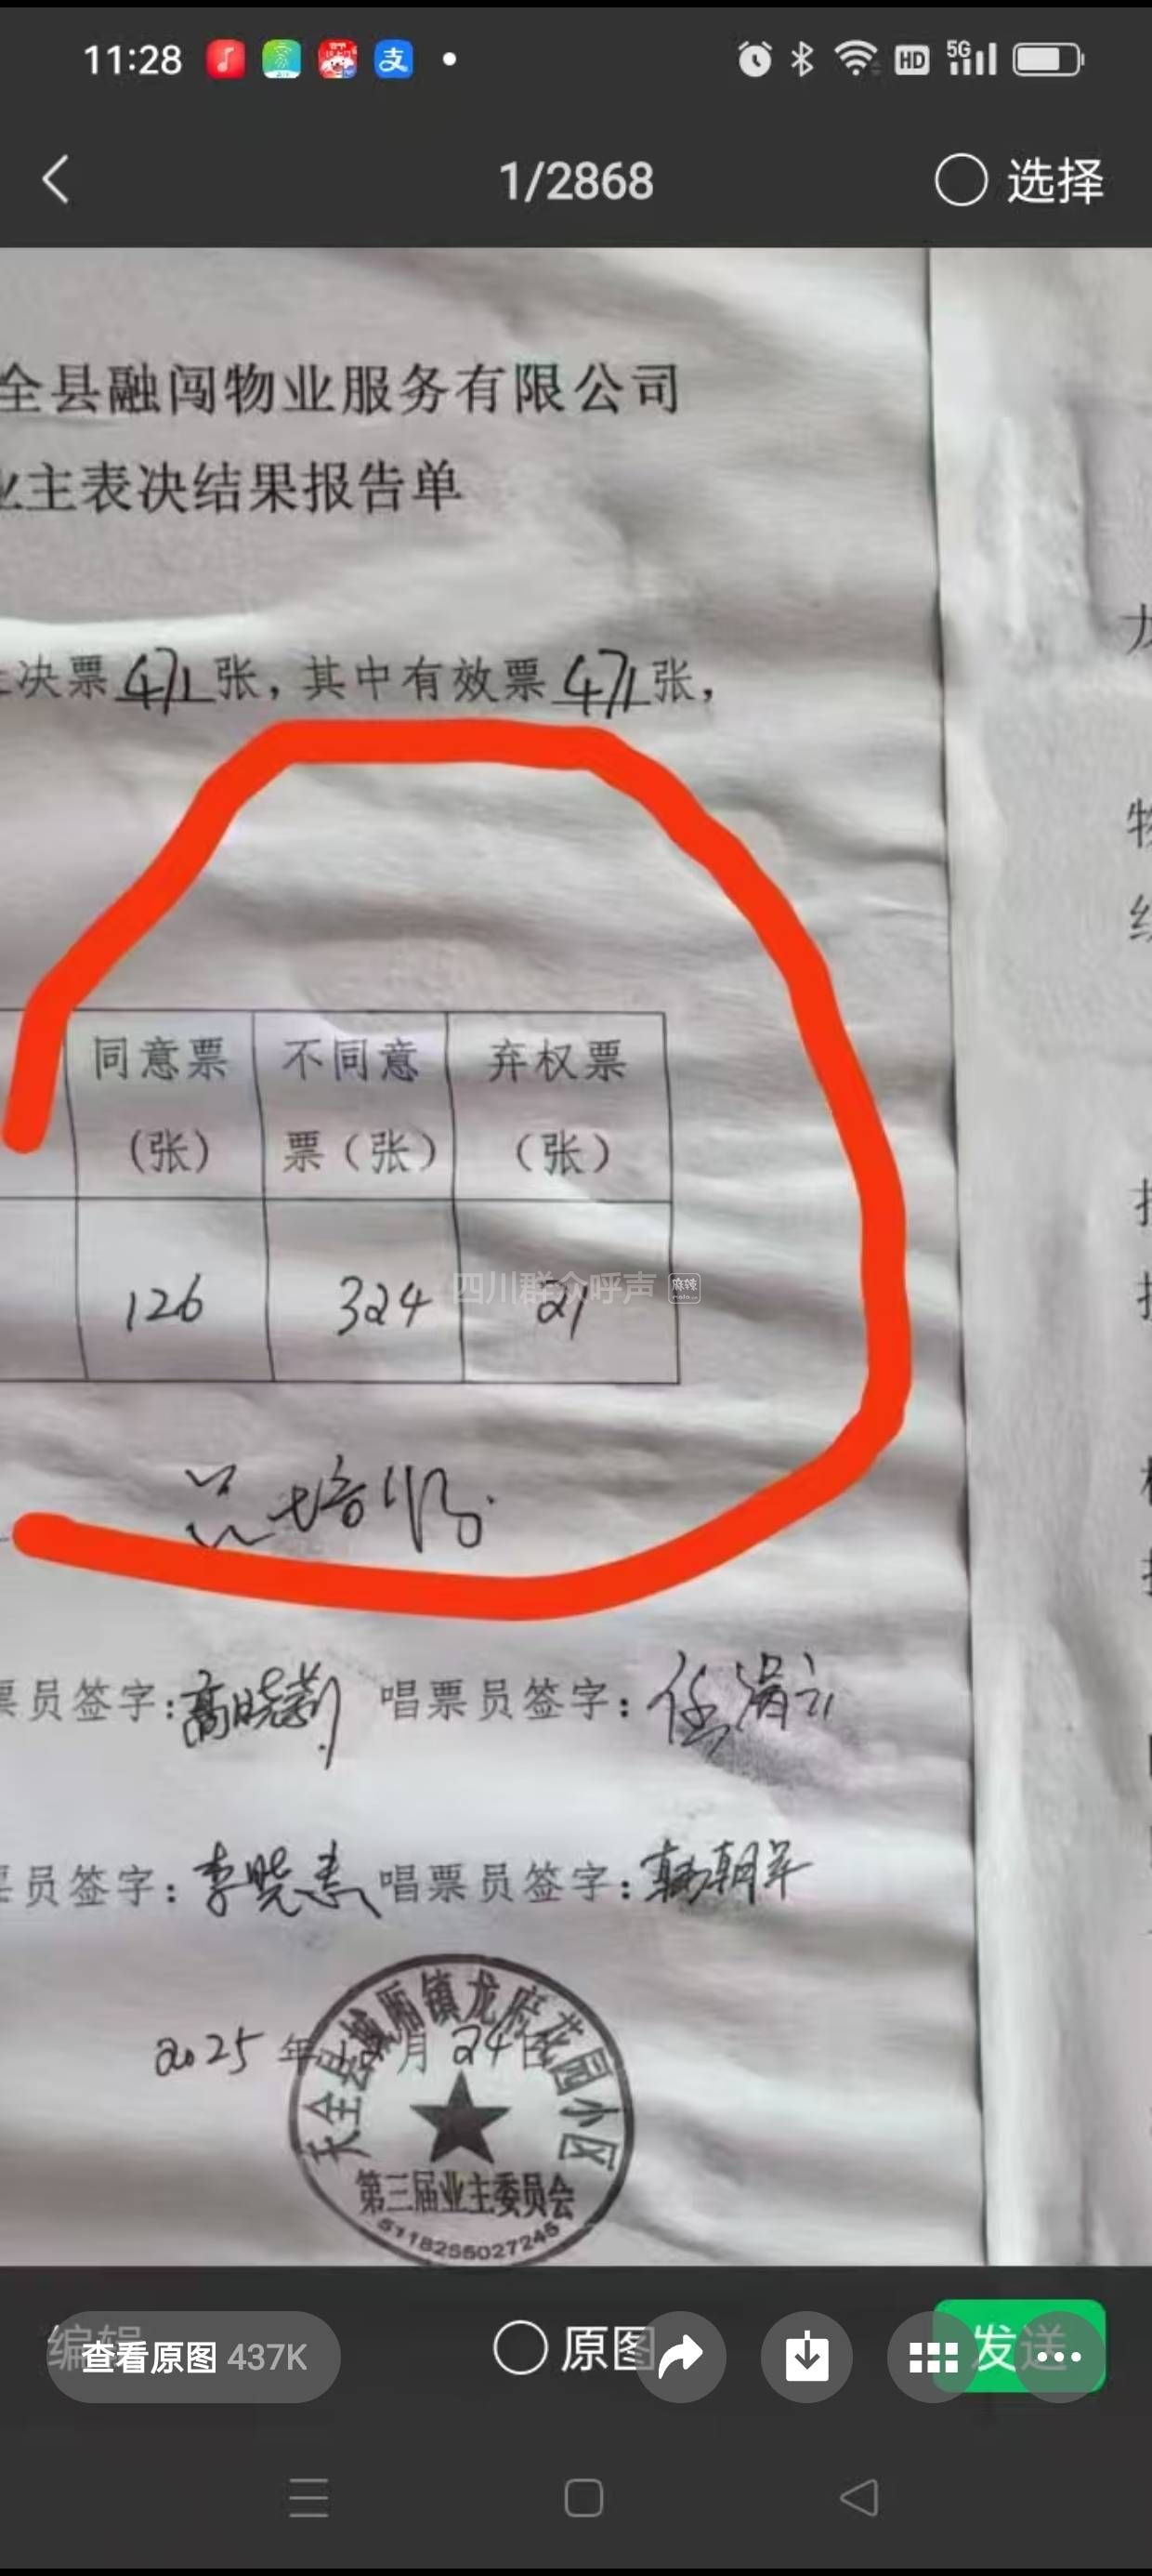 11:28
HD 5G
1/2868
选择
全县融闯物业服务有限公司
业主表决结果报告单
决票471张,其中有效票471张,
同意票(张)
不同意票(张)
弃权票(张)
126
324
21
四川群众呼声 麻辣
票员签字:高晓莉 唱票员签字:
票员签字:李晓 唱票员签字:
2025年 月24日
天全县城厢镇龙府花园小区
第三届业主委员会
5118255027245
编辑
查看原图 437K
原图
发送